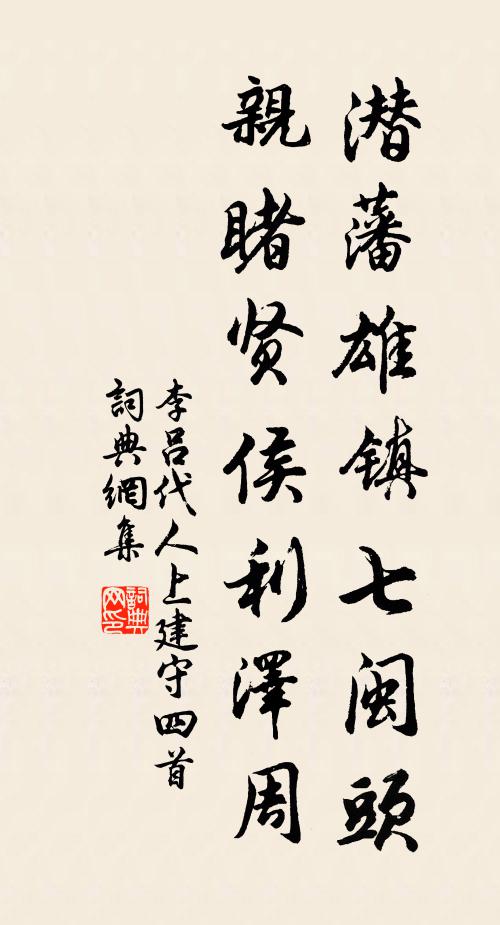 潜藩雄镇七闽頭
親睹贤侯利澤周
李吕代人上建守四首
詞典網集
詞典网印